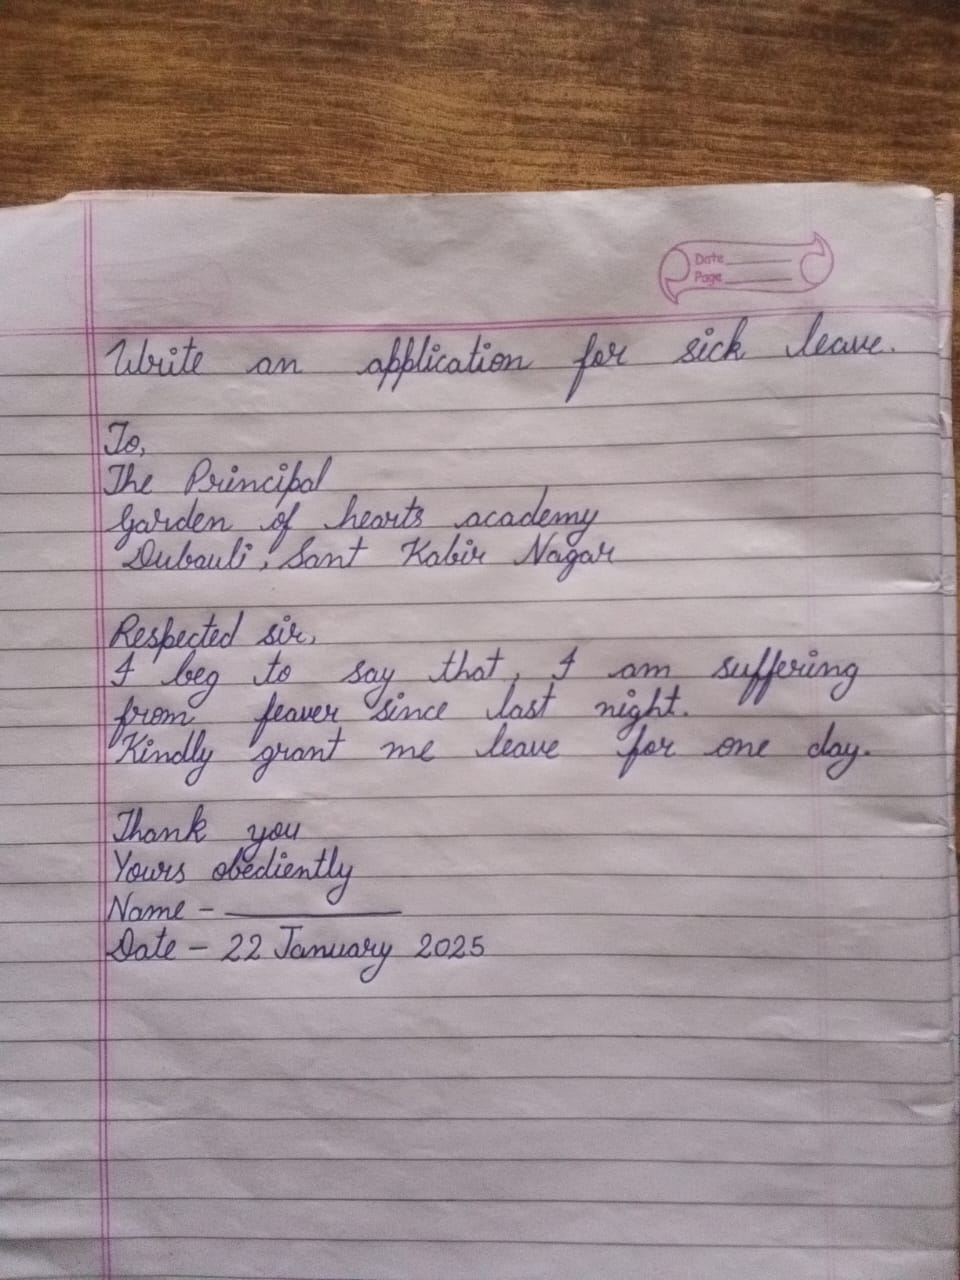 Date
Page
Write an application for sick leave.
To,
The Principal
Garden of hearts academy
Dubauli, Sant Kabir Nagar
Respected sir,
I beg to say that, I am suffering
from feaver since last night.
Kindly grant me leave for one day.
Thank you
Yours obediently
Name -
Date - 22 January 2025